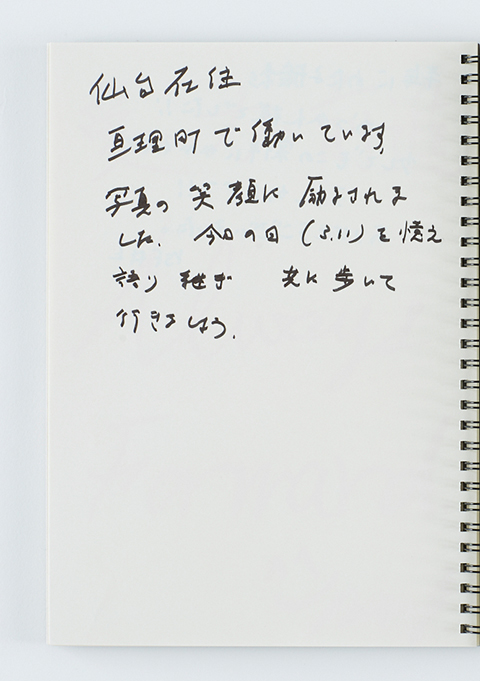 仙台在住
亘理町で働いています。
写真の笑顔に励まされま
した。今日の日(3.11)を憶え
語り継ぎ 共に歩いて
行きましょう。